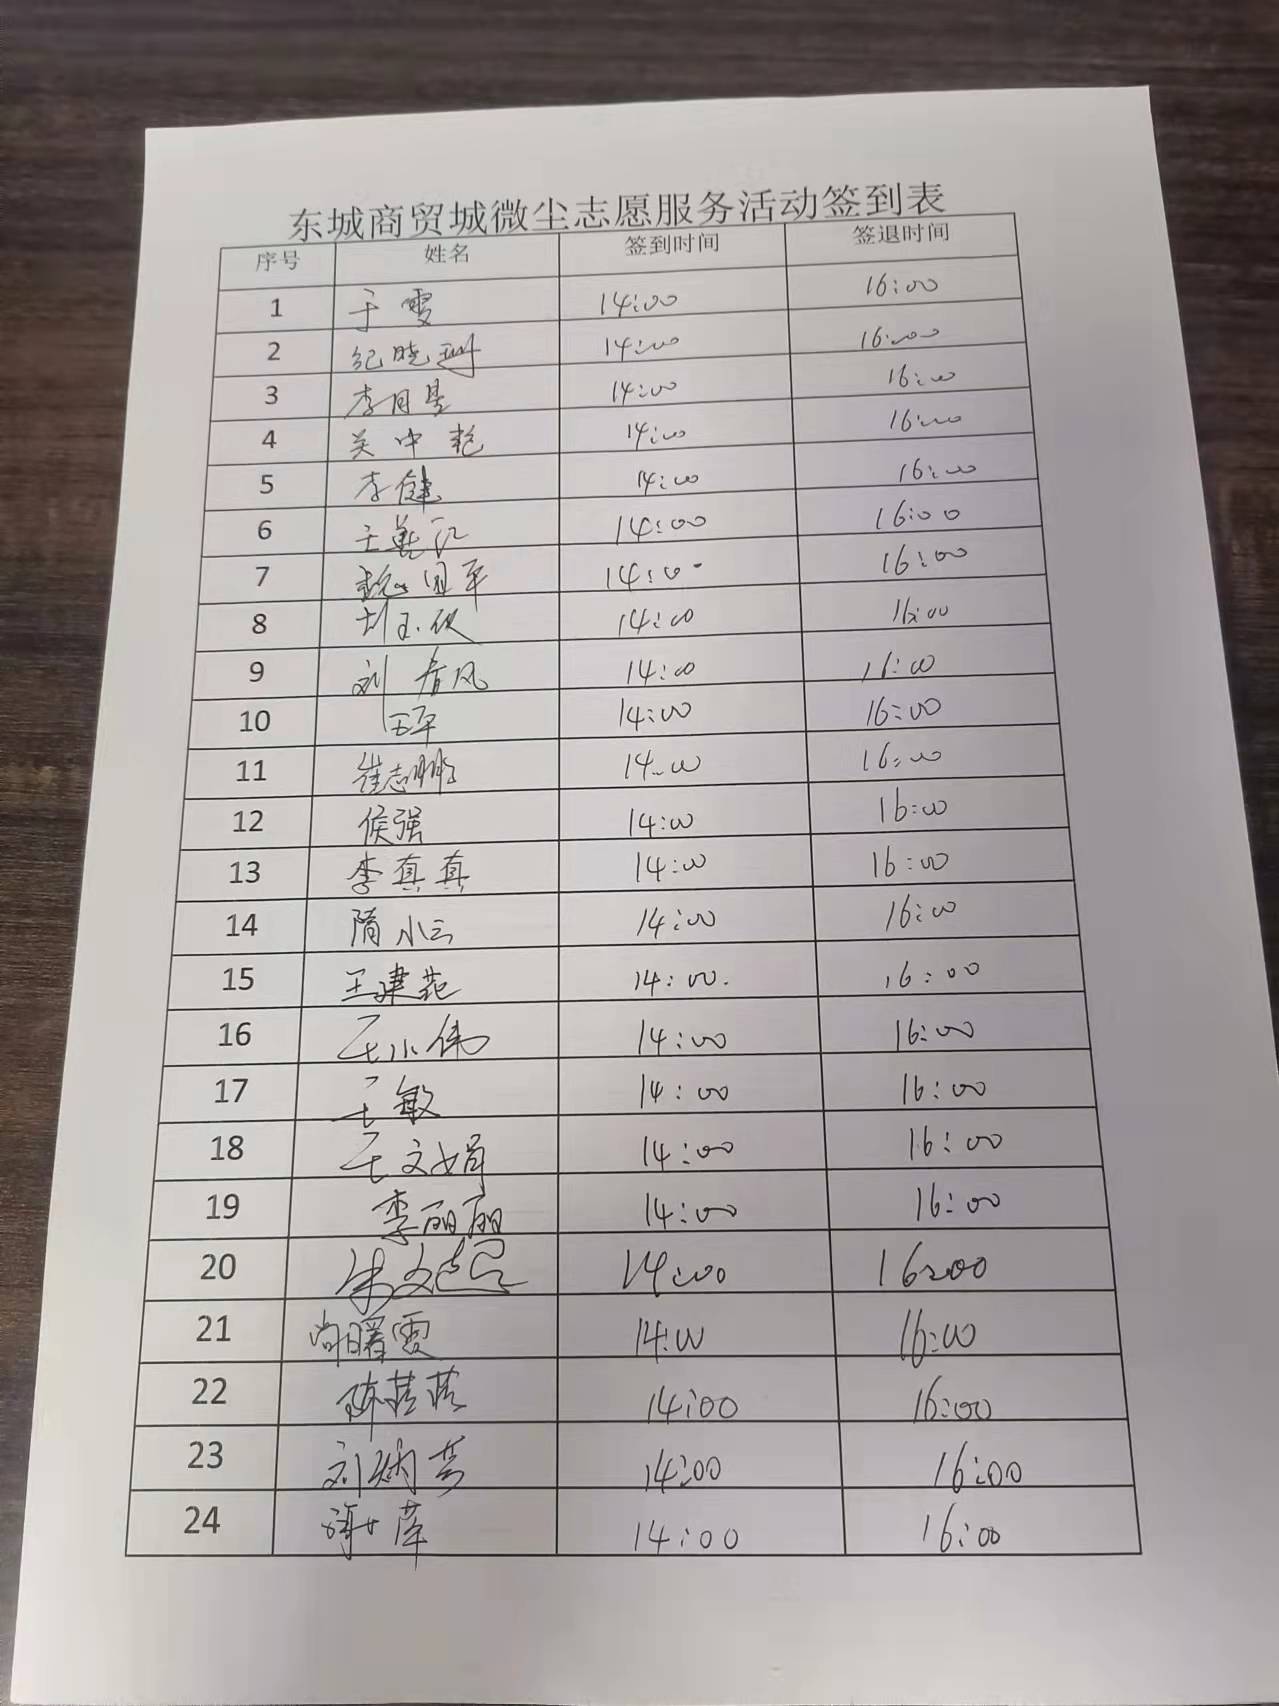 东城商贸城微尘志愿服务活动签到表
序号 姓名 签到时间 签退时间
1 于雯 14:00 16:00
2 纪晓珊 14:00 16:00
3 李月昱 14:00 16:00
4 关中乾 14:00 16:00
5 李健 14:00 16:00
6 14:00 16:00
7 14:00 16:00
8 14:00 16:00
9 刘春风 14:00 16:00
10 14:00 16:00
11 崔志鹏 14:00 16:00
12 侯强 14:00 16:00
13 李真真 14:00 16:00
14 隋小云 14:00 16:00
15 王建苑 14:00 16:00
16 于小伟 14:00 16:00
17 于敏 14:00 16:00
18 于文娟 14:00 16:00
19 李丽丽 14:00 16:00
20 14:00 16:00
21 尚曙霞 14:00 16:00
22 14:00 16:00
23 刘炳芳 14:00 16:00
24 14:00 16:00